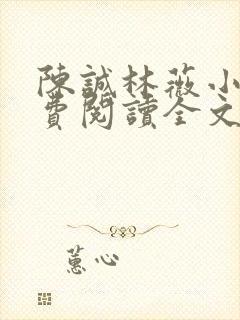 陳誠林薇小
費閱讀全文
蕙心